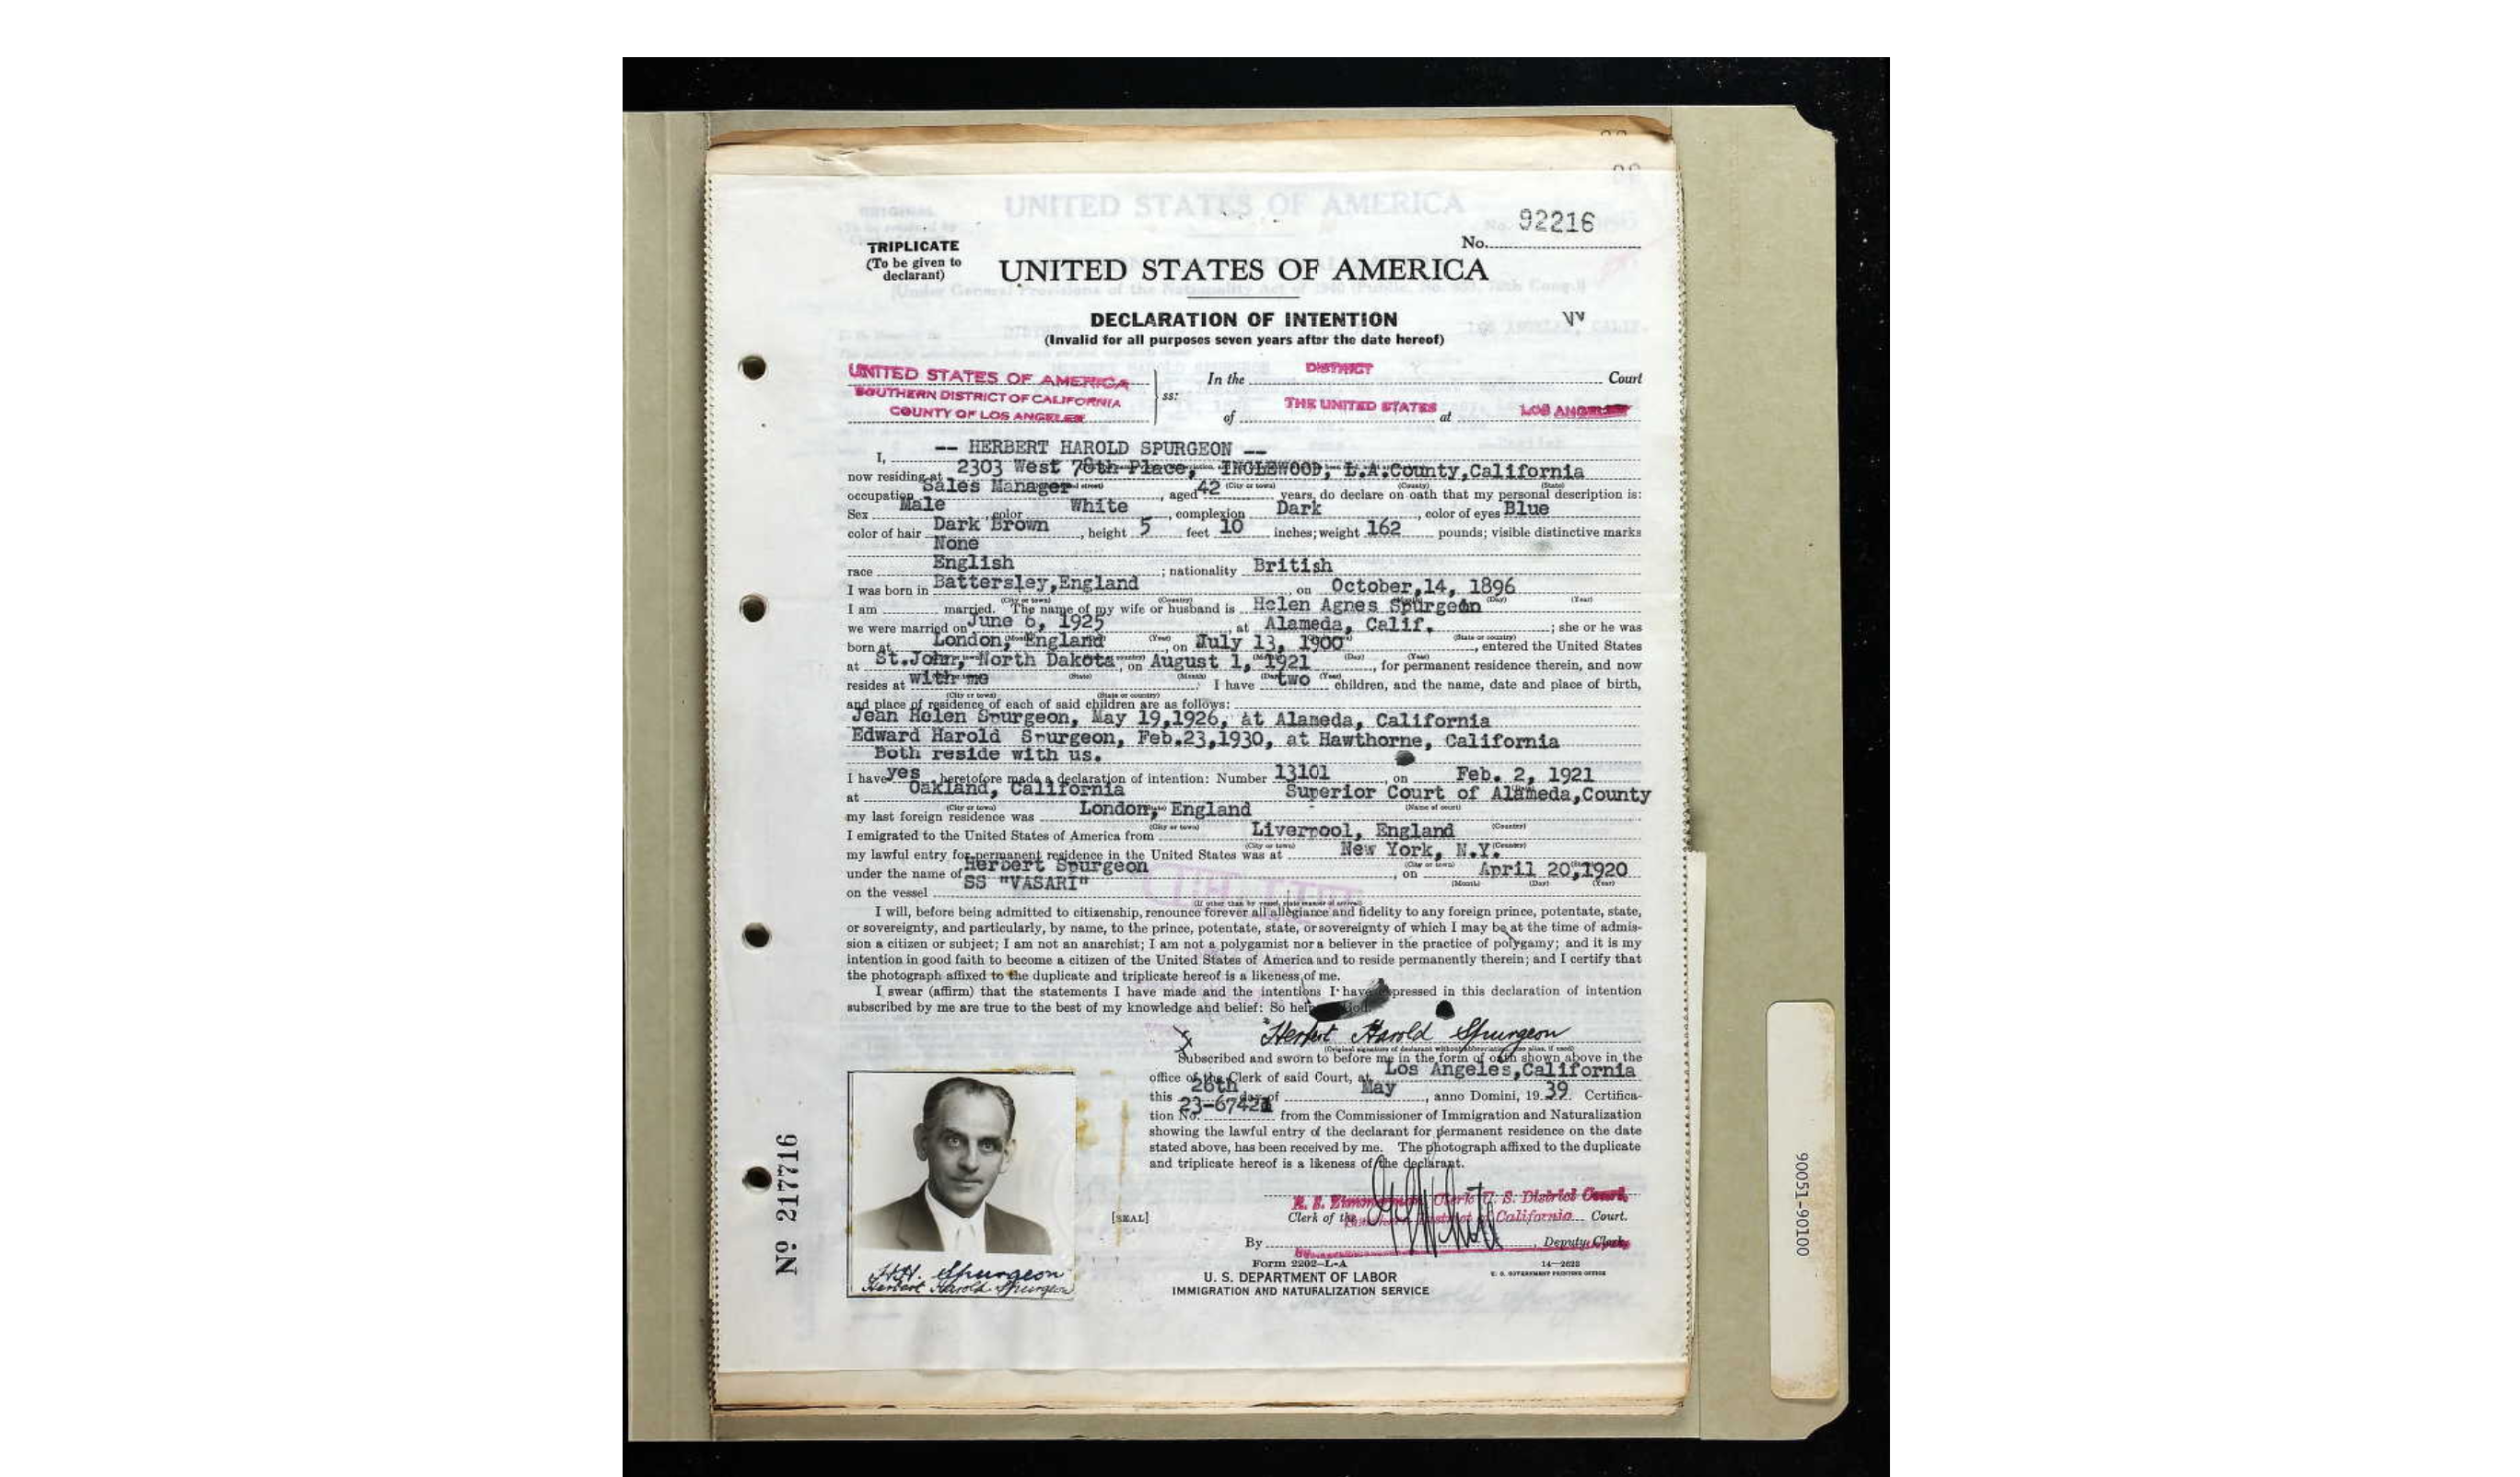 92216
No.
TRIPLICATE
(To be given to
declarant)
UNITED STATES OF AMERICA
DECLARATION OF INTENTION
(Invalid for all purposes seven years after the date hereof)
UNITED STATES OF AMERICA
SOUTHERN DISTRICT OF CALIFORNIA
COUNTY OF LOS ANGELES
ss:
In the DISTRICT Court
of THE UNITED STATES at LOS ANGELES
I, -- HERBERT HAROLD SPURGEON --
now residing at 2303 West 78th Place, INGLEWOOD, L.A.County,California
occupation Sales Manager, aged 42 years, do declare on oath that my personal description is:
Sex Male, color White, complexion Dark, color of eyes Blue
color of hair Dark Brown, height 5 feet 10 inches; weight 162 pounds; visible distinctive marks
None
race English; nationality British
I was born in Battersley,England, on October,14, 1896
I am married. The name of my wife or husband is Helen Agnes Spurgeon
we were married on June 6, 1925, at Alameda, Calif.; she or he was
born at London, England, on July 13, 1900, entered the United States
at St.John, North Dakota, on August 1, 1921, for permanent residence therein, and now
resides at with me. I have two children, and the name, date and place of birth,
and place of residence of each of said children are as follows:
Jean Helen Spurgeon, May 19,1926, at Alameda, California
Edward Harold Spurgeon, Feb.23,1930, at Hawthorne, California
Both reside with us.
I have yes heretofore made a declaration of intention: Number 13101, on Feb. 2, 1921
at Oakland, California Superior Court of Alameda,County
my last foreign residence was London, England
I emigrated to the United States of America from Liverpool, England
my lawful entry for permanent residence in the United States was at New York, N.Y.
under the name of Herbert Spurgeon, on April 20,1920
on the vessel SS "VASARI"
(If other than by vessel, state manner of arrival)
I will, before being admitted to citizenship, renounce forever all allegiance and fidelity to any foreign prince, potentate, state,
or sovereignty, and particularly, by name, to the prince, potentate, state, or sovereignty of which I may be at the time of admis-
sion a citizen or subject; I am not an anarchist; I am not a polygamist nor a believer in the practice of polygamy; and it is my
intention in good faith to become a citizen of the United States of America and to reside permanently therein; and I certify that
the photograph affixed to the duplicate and triplicate hereof is a likeness of me.
I swear (affirm) that the statements I have made and the intentions I have expressed in this declaration of intention
subscribed by me are true to the best of my knowledge and belief: So help God.
Herbert Harold Spurgeon
Subscribed and sworn to before me in the form of oath shown above in the
office of the Clerk of said Court, at Los Angeles,California
this 26th day of May, anno Domini, 1939. Certifica-
tion No. 23-67421 from the Commissioner of Immigration and Naturalization
showing the lawful entry of the declarant for permanent residence on the date
stated above, has been received by me. The photograph affixed to the duplicate
and triplicate hereof is a likeness of the declarant.
R. S. Zimmerman, Clerk U. S. District Court,
[SEAL]
Clerk of the Southern District of California Court.
By , Deputy Clerk.
Form 2202-L-A
14—2623
U. S. DEPARTMENT OF LABOR
IMMIGRATION AND NATURALIZATION SERVICE
U. S. GOVERNMENT PRINTING OFFICE
H.H. Spurgeon
Herbert Harold Spurgeon
No 217716
90051-90100